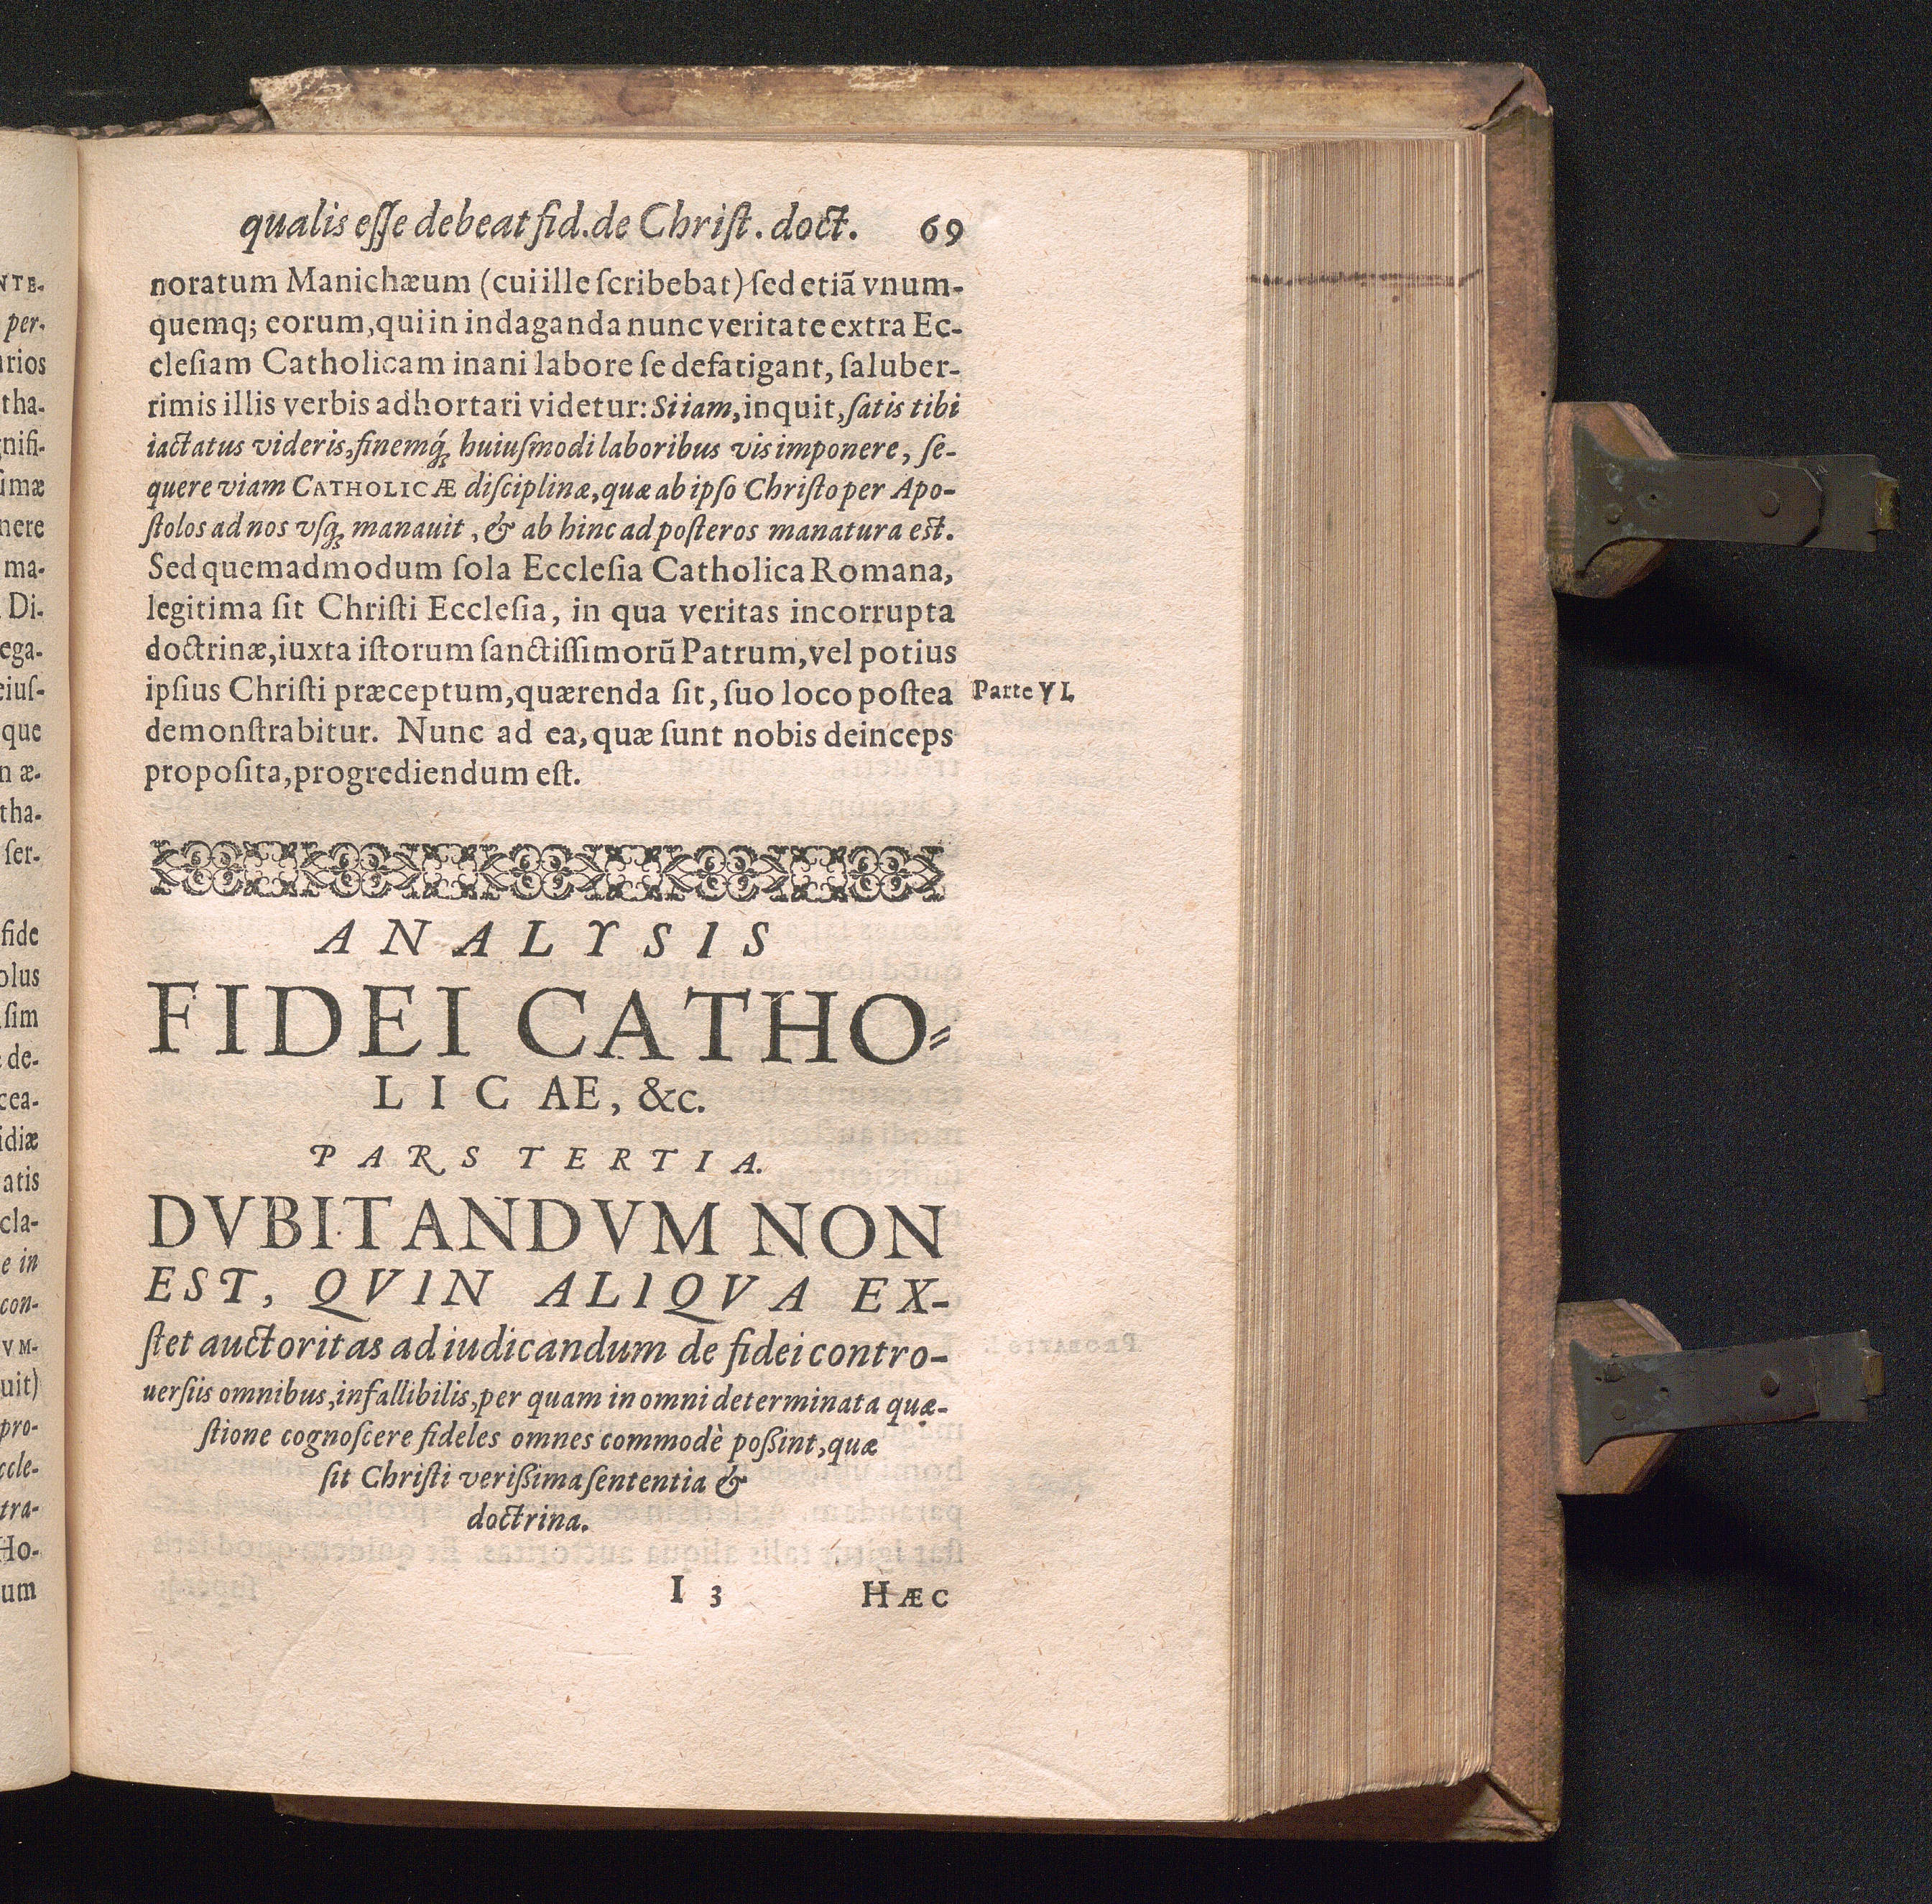 qualis eſſe debeat fid. de Chriſt. doct. 69
noratum Manichæum (cui ille ſcribebat) ſed etiã vnum-
quemq; eorum, qui in indaganda nunc veritate extra Ec-
cleſiam Catholicam inani labore ſe defatigant, ſaluber-
rimis illis verbis adhortari videtur: Si iam, inquit, ſatis tibi
iactatus videris, finemq́; huiuſmodi laboribus vis imponere, ſe-
quere viam CATHOLICÆ diſciplinæ, quæ ab ipſo Chriſto per Apo-
ſtolos ad nos vſq; manauit, & ab hinc ad poſteros manatura eſt.
Sed quemadmodum ſola Eccleſia Catholica Romana,
legitima ſit Chriſti Eccleſia, in qua veritas incorrupta
doctrinæ, iuxta iſtorum ſanctiſſimorũ Patrum, vel potius
ipſius Chriſti præceptum, quærenda ſit, ſuo loco poſtea
Parte VI.
demonſtrabitur. Nunc ad ea, quæ ſunt nobis deinceps
propoſita, progrediendum eſt.
ANALYSIS
FIDEI CATHO-
LICAE, &c.
PARS TERTIA.
DVBITANDVM NON
EST, QVIN ALIQVA EX-
ſtet auctoritas ad iudicandum de fidei contro-
uerſiis omnibus, infallibilis, per quam in omni determinata quæ-
ſtione cognoſcere fideles omnes commodè poßint, quæ
ſit Chriſti verißima ſententia &
doctrina.
I 3 HÆC
NTE-
per-
arios
tha-
gnifi-
imæ
nere
ma-
Di-
ega-
eiuſ-
que
n æ-
tha-
ſer-
fide
olus
ſim
de-
cea-
idiæ
atis
cla-
e in
con-
VM-
uit)
pro-
ccle-
tra-
Ho-
um